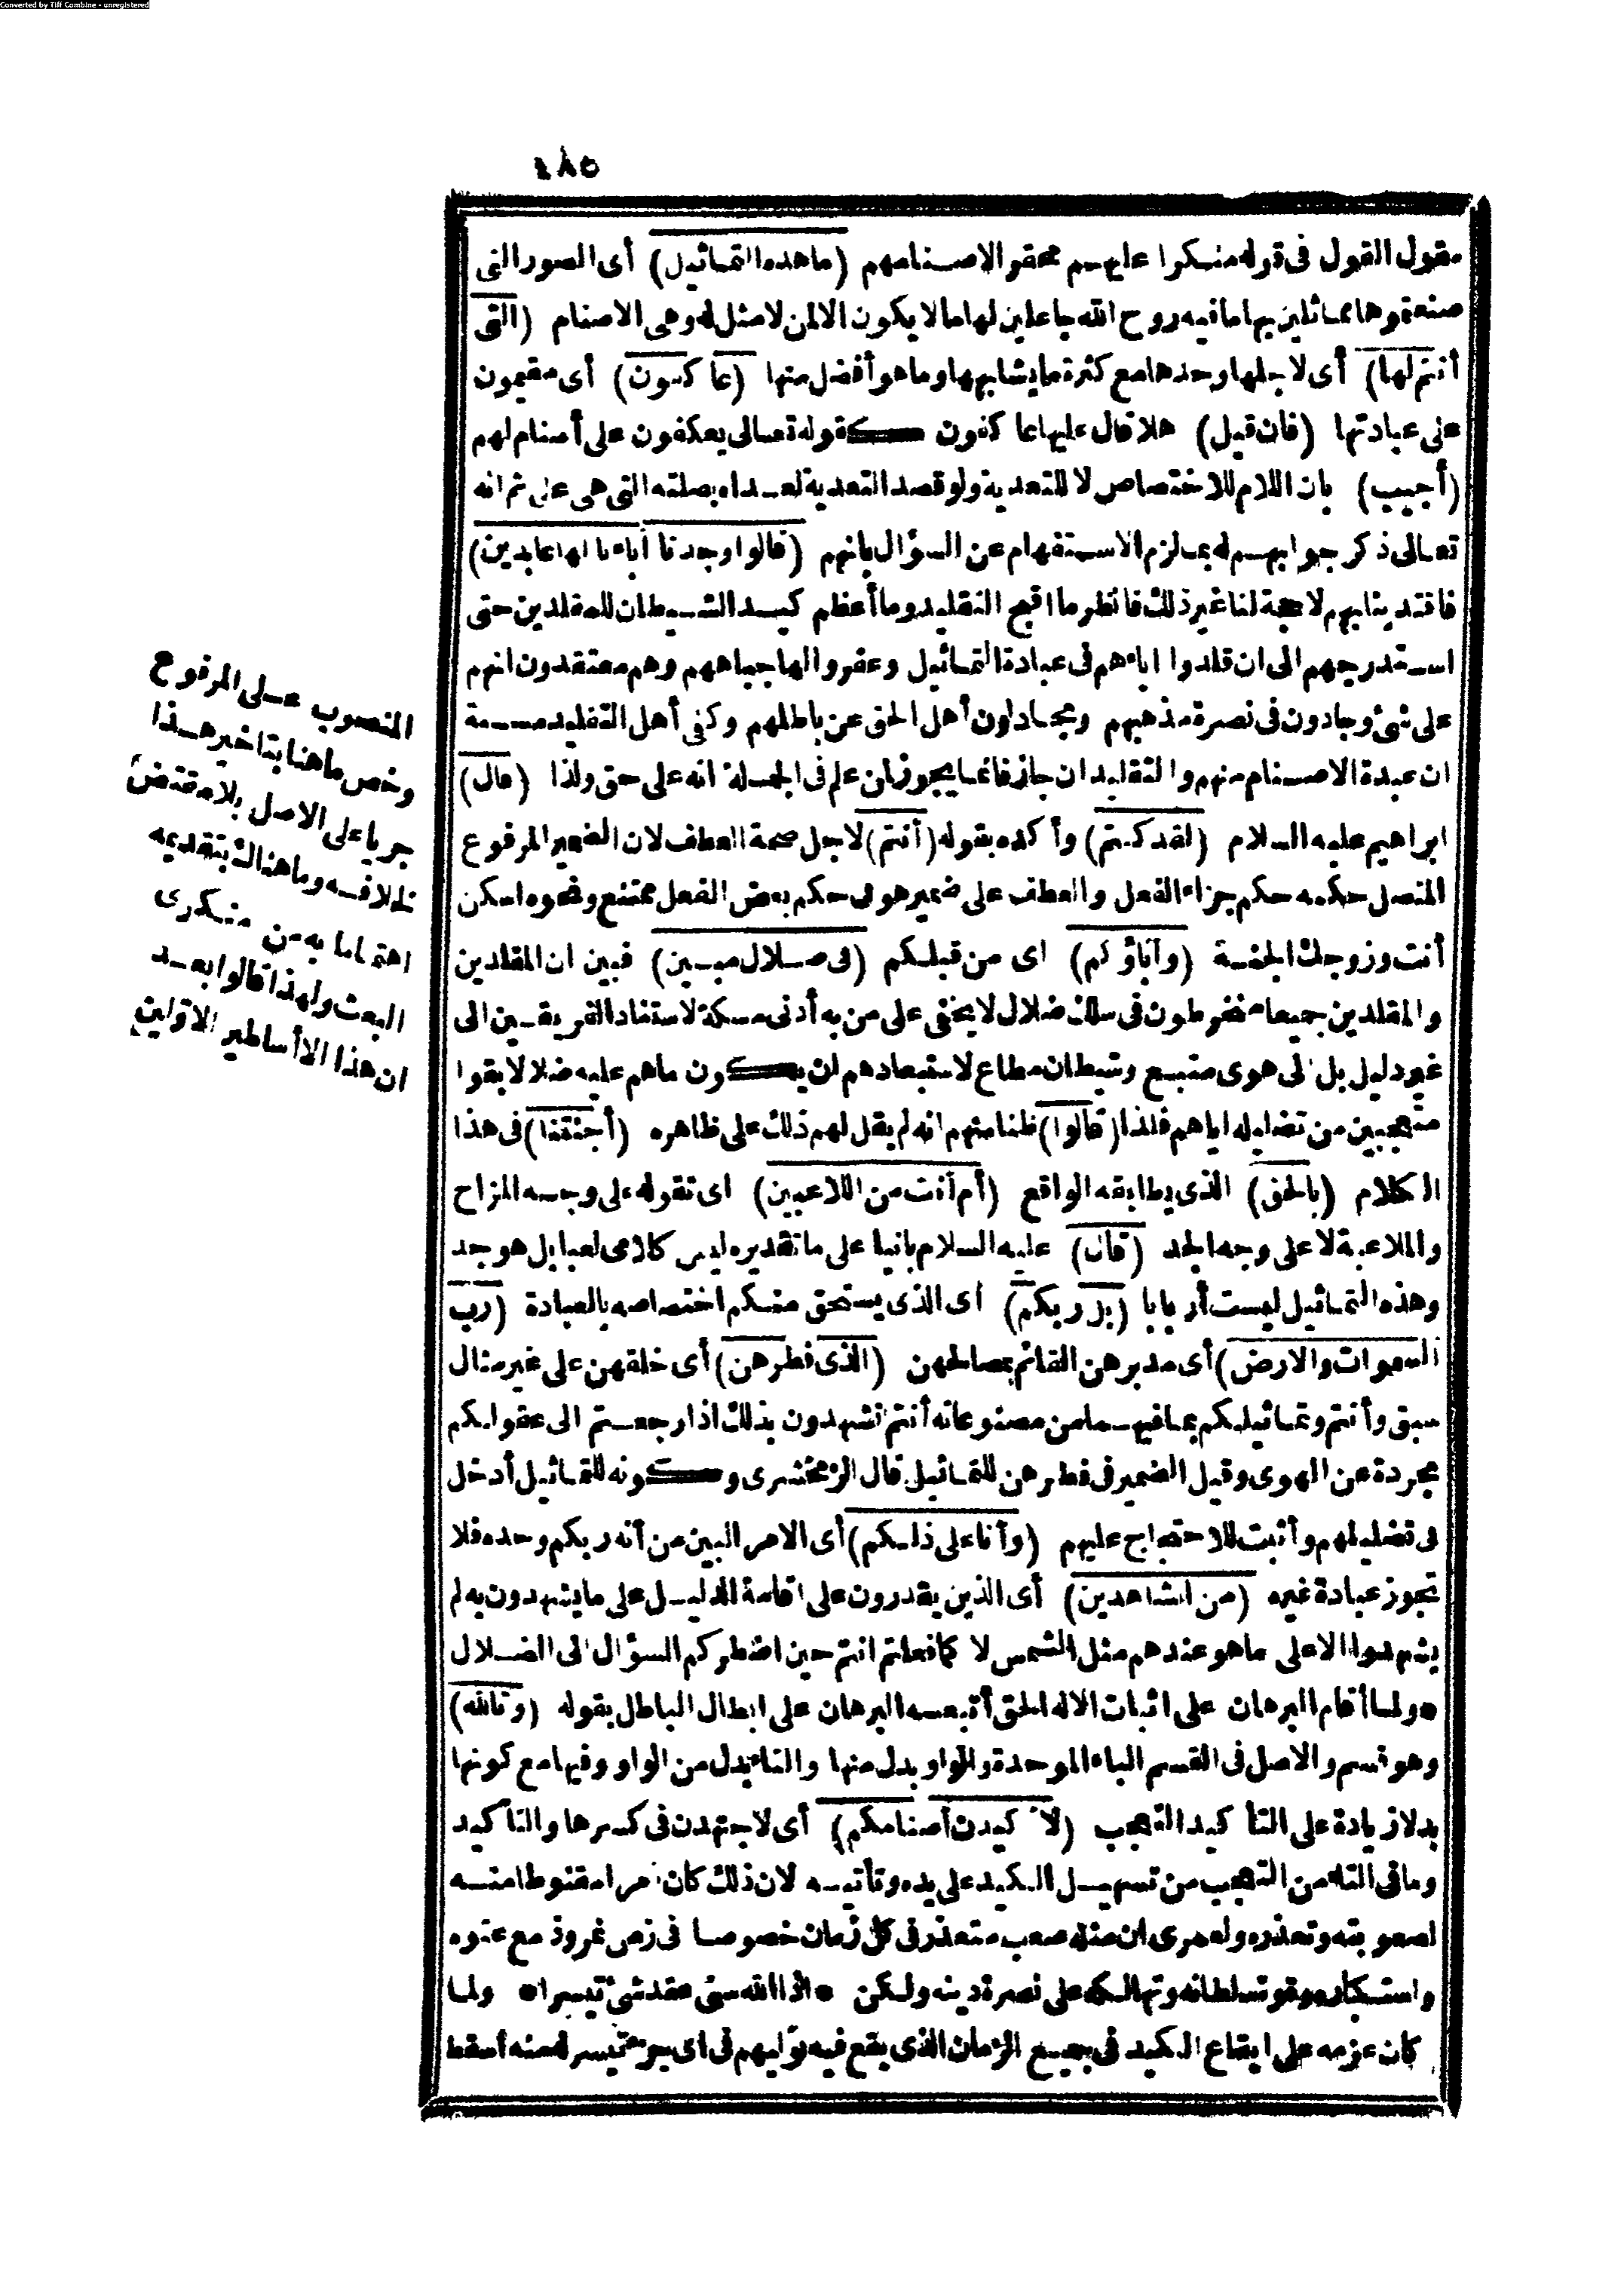 Converted by Tiff Combine - unregistered
٤٨٥
مقول القول فى قوله منكرا عليهم محقرا لاصنامهم (ما هذه التماثيل) أى الصور التى
صنعتموها مماثلين بها ما فيه روح الله جاعلين لها ما لا يكون الا لمن لا مثل له وهى الاصنام (التى
أنتم لها) أى لاجلها وحدها مع كثرة ما يشابهها وما هو أفضل منها (عاكفون) أى مقيمون
على عبادتها (فان قيل) هلا قال عليها عاكفون كقوله تعالى يعكفون على أصنام لهم
(أجيب) بان اللام للاختصاص لا للتعدية ولو قصد التعدية لعداه بصلته التى هى على ثم انه
تعالى ذكر جوابهم له بما لزم الاستفهام عن السؤال بانهم (قالوا وجدنا آباءنا لها عابدين)
فاقتدينا بهم لا حجة لنا غير ذلك فانظر ما اقبح التقليد وما أعظم كيد الشيطان للمقلدين حتى
استدرجهم الى ان قلدوا اباءهم فى عبادة التماثيل وعفروا لها جباههم وهم معتقدون انهم
على شئ وجادون فى نصرة مذهبهم ومجادلون أهل الحق عن باطلهم وكفى أهل التقليد مسبة
ان عبدة الاصنام منهم والتقليد ان جاز فانما يجوز لمن علم فى الجملة انه على حق ولذا (قال)
ابراهيم عليه السلام (لقد كنتم) وأكده بقوله (أنتم) لاجل صحة العطف لان الضمير المرفوع
المتصل حكمه حكم جزء الفعل والعطف على ضمير هو فى حكم بعض الفعل ممتنع ونحوه اسكن
أنت وزوجك الجنة (وآباؤكم) اى من قبلكم (فى ضلال مبين) فبين ان المقلدين
والمقلدين جميعا منخرطون فى سلك ضلال لا يخفى على من به أدنى مسكة لاستناد الفريقين الى
غير دليل بل الى هوى متبع وشيطان مطاع لاستبعادهم ان يكون ما هم عليه ضلالا بقوا
متعجبين من تضليله اياهم فلذا (قالوا) ظنا منهم انه لم يقل لهم ذلك على ظاهره (أجئتنا) فى هذا
الكلام (بالحق) الذى يطابقه الواقع (أم أنت من اللاعبين) اى تقوله على وجه المزاح
والملاعبة لا على وجه الجد (قال) عليه السلام بانيا على ما تقديره ليس كلامى لعبا بل هو جد
وهذه التماثيل ليست أربابا (بل ربكم) اى الذى يستحق منكم اختصاصه بالعبادة (رب
السموات والارض) أى مدبرهن القائم بمصالحهن (الذى فطرهن) أى خلقهن على غير مثال
سبق وأنتم وتماثيلكم بما فيهما من مصنوعاته أنتم تشهدون بذلك اذا رجعتم الى عقولكم
مجردة عن الهوى وقيل الضمير فى فطرهن للتماثيل قال الزمخشرى وكونه للتماثيل أدخل
فى تضليلهم وأثبت للاحتجاج عليهم (وأنا على ذلكم) أى الامر البين من أنه ربكم وحده فلا
تجوز عبادة غيره (من الشاهدين) أى الذين يقدرون على اقامة الدليل على ما يشهدون به لم
يشهدوا الا على ما هو عندهم مثل الشمس لا كما فعلتم انتم حين اضطركم السؤال الى الضلال
* ولما أقام البرهان على اثبات الاله الحق أتبعه البرهان على ابطال الباطل بقوله (وتالله)
وهو قسم والاصل فى القسم الباء الموحدة والواو بدل منها والتاء بدل من الواو وفيها مع كونها
بدلا زيادة على التأكيد التعجب (لأكيدن أصنامكم) أى لاجتهدن فى كسرها والتأكيد
وما فى التاء من التعجب من تسهيل الكيد على يده وتأتيه لان ذلك كان أمرا مقنوطا منه
لصعوبته وتعذره ولعمرى ان مثله صعب متعذر فى كل زمان خصوصا فى زمن نمروذ مع عتوه
واستكباره وقوة سلطانه وتهالكه على نصرة دينه ولكن * اذا الله سنى عقد شئ تيسرا * ولما
كان عزمه على ايقاع الكيد فى جميع الزمان الذى يقع فيه توليهم فى اى جزء تيسر له منه أسقط
المنصوب على المرفوع
وخص ما هنا بتاخير هذا
جريا على الاصل بلا مقتض
لخلافه وما هنالك بتقديمه
اهتماما به من منكرى
البعث ولهذا قالوا بعد
ان هذا الا أساطير الاولين